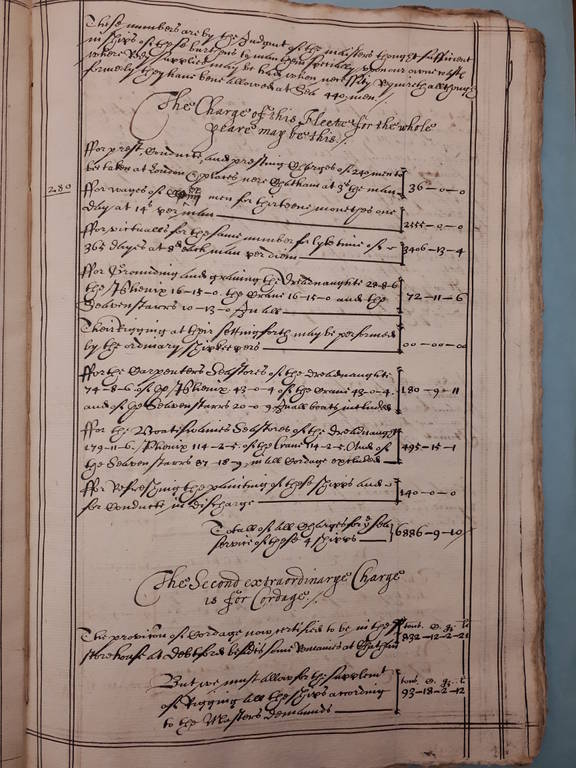 These numbers are by the Judgmt of the Maisters thought sufficient
in shipps of these burthens by man them specially upon our owne
where supplied may be had when necessity Requireth although
formerly they haue bene allowed at Sea 440 men.
The Charge of this Fleete for the whole
yeare may be this.
ffor prest, Conducte, and presting Charges of 240 men to
be taken at London & places nere Chatham at 3s the man
36-0-0
280
ffor wages of men for thirteene monethes one
day at 14s per man
2555-0-0
ffor victualls for the same number for lyke time of
365 dayes at 8d each man per diem
3406-13-4
ffor Growneing and graving the Dreadnaught 28-8-6
the Phenix 16-15-0. the Crane 16-15-0 and the
Seavenstarrs 10-13-0 In all
72-11-6
Their Rigging at their setting forth may be performed
by the ordinary shipkeepers
00-00-00
ffor the Carpenters Seastores of the Dreadnaught
74-8-6 of ye Phenix 43-0-4 of the Crane 43-0-4.
and of ye Seavenstarrs 20-0-9 In all boats included
180-9-11
ffor the Boatswaines Seastores of the Dreadnaught
179-11-6. Phenix 114-2-5. of the Crane 114-2-5. And of
the Seavenstarrs 87-18-9. in all Cordage excluded
495-15-1
ffor Refreshing the painting of these shipps and
for Conducte in Discharge
140-0-0
Totall of all Charges for ye Sea
service of these 4 shipps
6886-9-10
The Second extraordinarye Charge
is for Cordage.
The provision of Cordage now certified to be in the
storehouse at Debtford besides some Remaines at Chatham
tonns. C. q. l
832-12-2-21
But we must allow for the supplemt
of Rigging all the shipps according
to the Masters Demaunds
tonns. C. q. l
93-18-2-12